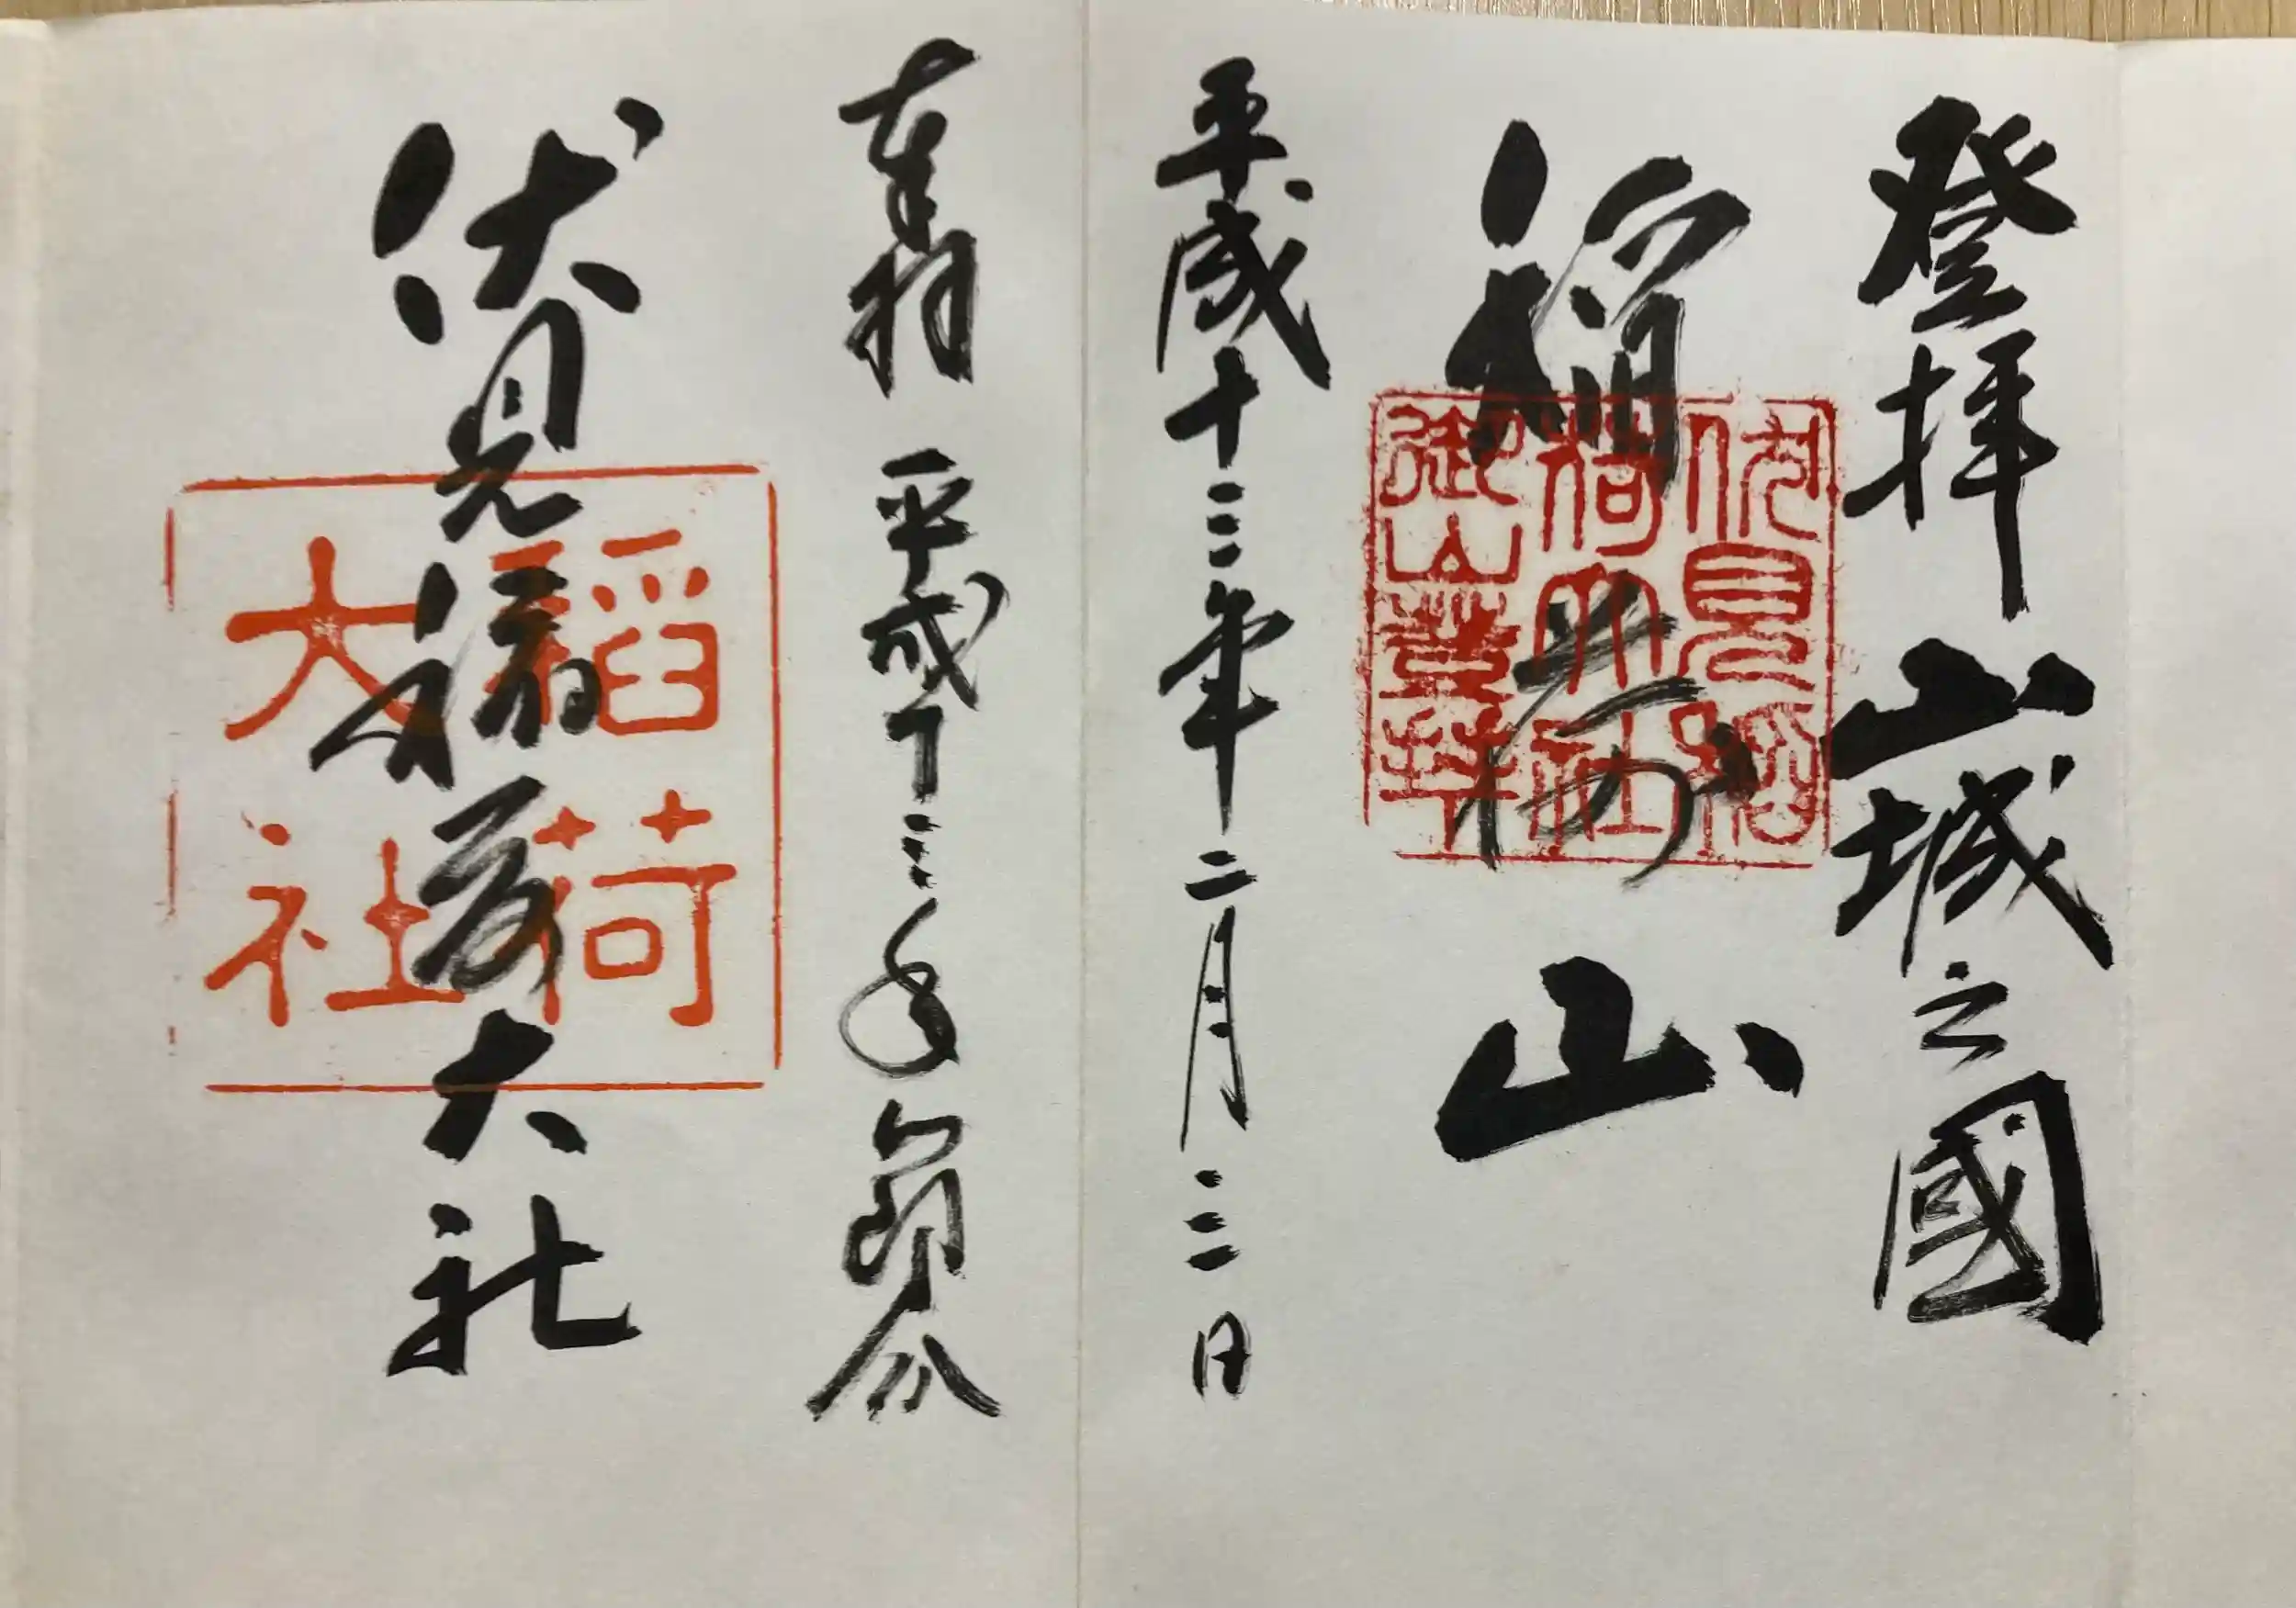 登拝 山城之國
稲荷山
伏見稻
荷大社
御山登拝
平成十三年二月三日
奉拝 平成十三年 節分
伏見稲荷大社
稻荷
大社